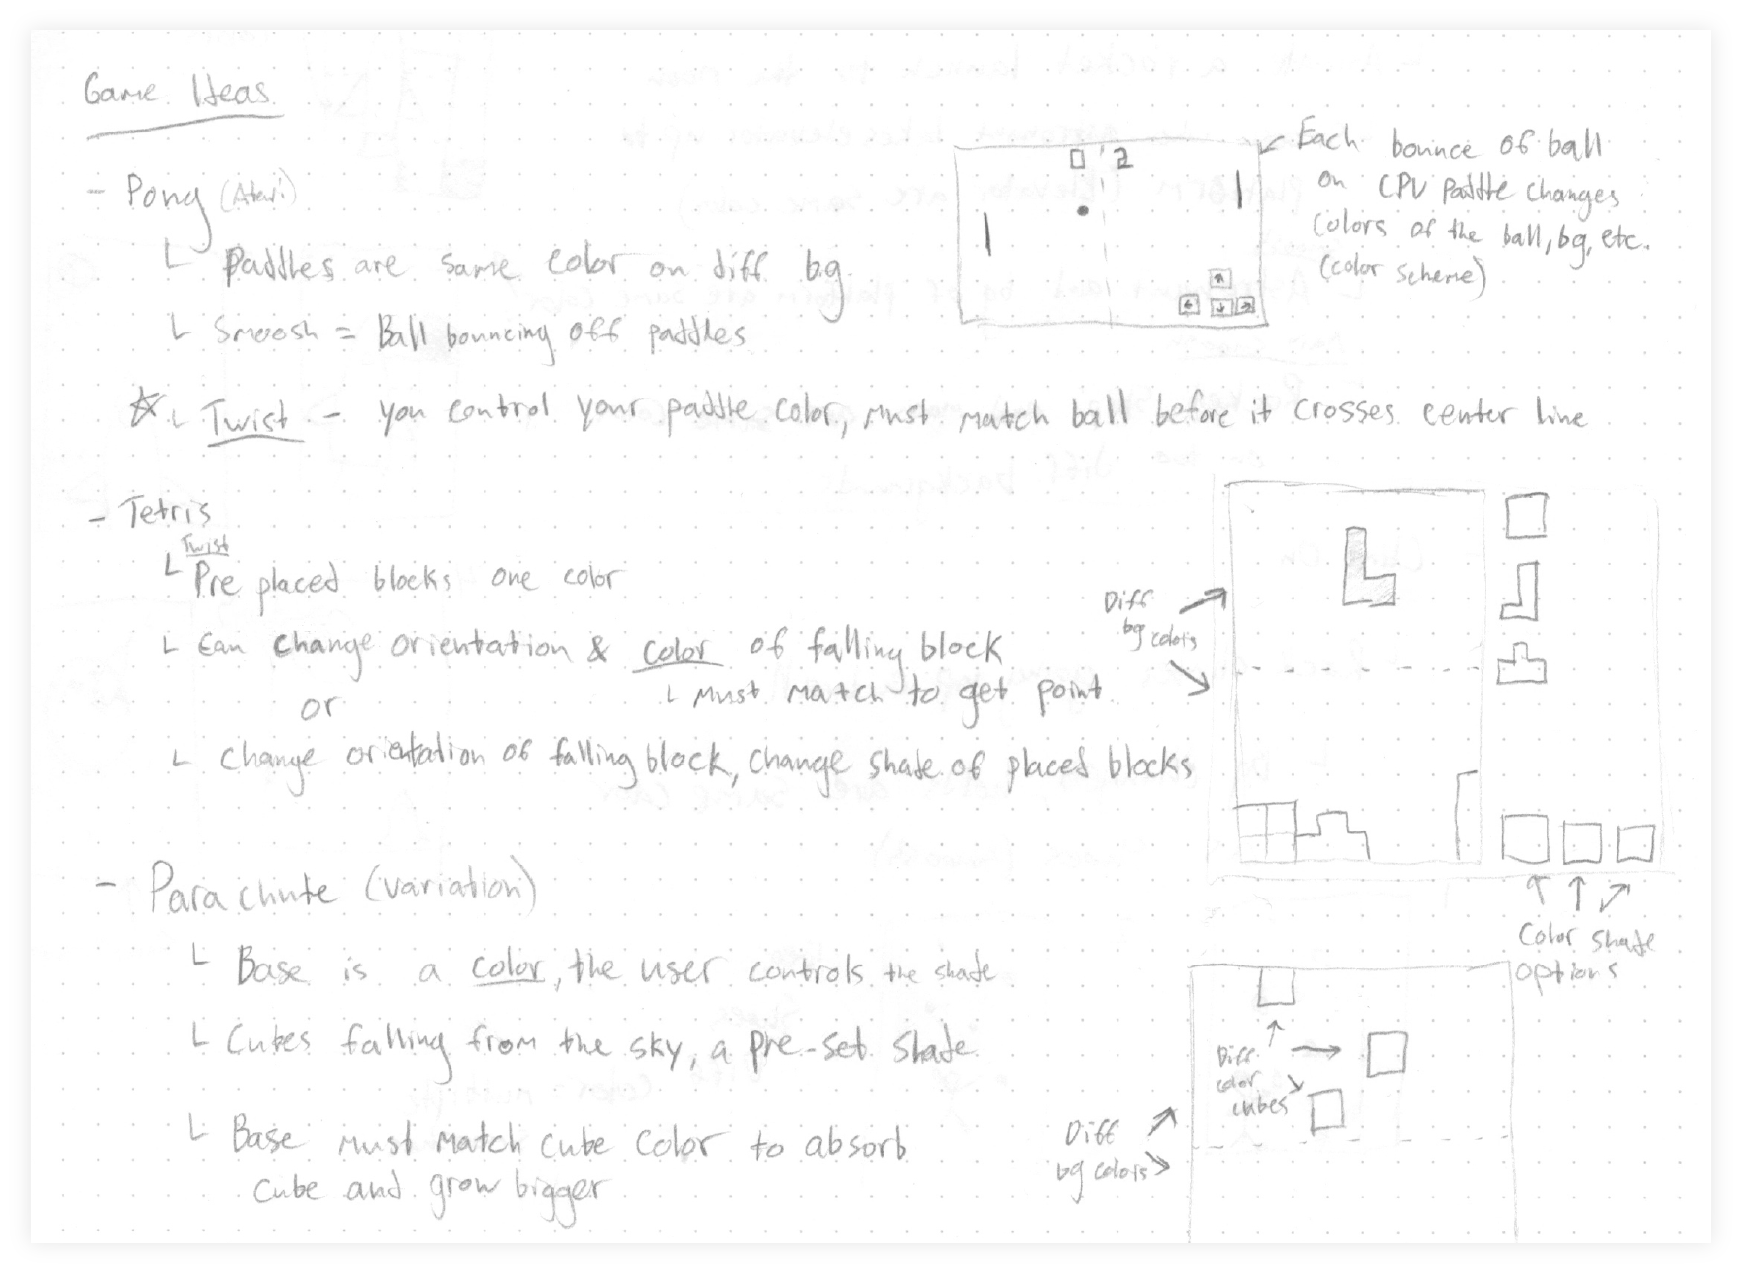 Game Ideas
- Pong (Atari)
└ Paddles are same color on diff bg
└ Smoosh = Ball bouncing off paddles
☆ └ Twist - you control your paddle color, must match ball before it crosses center line
0 2
← Each bounce of ball
on CPU paddle changes
colors of the ball, bg, etc.
(color scheme)
↑
← ↓ →
- Tetris
Twist
└ Pre placed blocks one color
└ Can change orientation & color of falling block
└ Must match to get point
or
└ Change orientation of falling block, change shade of placed blocks
Diff
bg colors
Color shade
options
- Parachute (variation)
└ Base is a color, the user controls the shade
└ Cubes falling from the sky, a pre-set shade
└ Base must match cube color to absorb
cube and grow bigger
Diff
color
cubes
Diff
bg colors